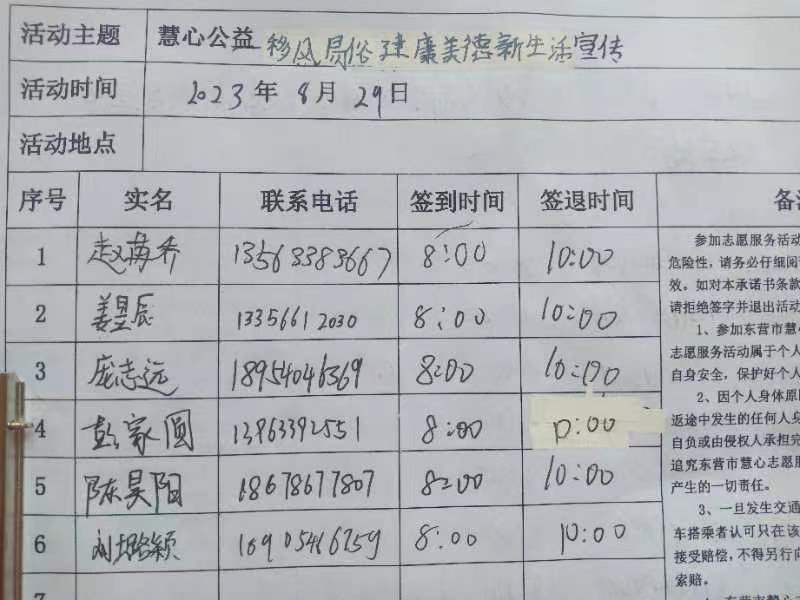 活动主题 慧心公益 移风易俗 健康美德新生活宣传
活动时间 2023年8月29日
活动地点
序号 实名 联系电话 签到时间 签退时间
1 13563383667 8:00 10:00
2 姜昱辰 13356612030 8:00 10:00
3 庞志远 18954046369 8:00 10:00
4 彭家圆 13963392551 8:00 10:00
5 陈昊阳 18678677807 8:00 10:00
6 8:00 10:00
7
参加志愿服务活动
危险性，请务必仔细阅
效。如对本承诺书条款
请拒绝签字并退出活动
1、参加东营市慧
志愿服务活动属于个人
自身安全，保护好个人
2、因个人身体原
返途中发生的任何人身
自负或由侵权人承担完
追究东营市慧心志愿服
产生的一切责任。
3、一旦发生交通
车搭乘者认可只在该
接受赔偿，不得另行向
索赔。